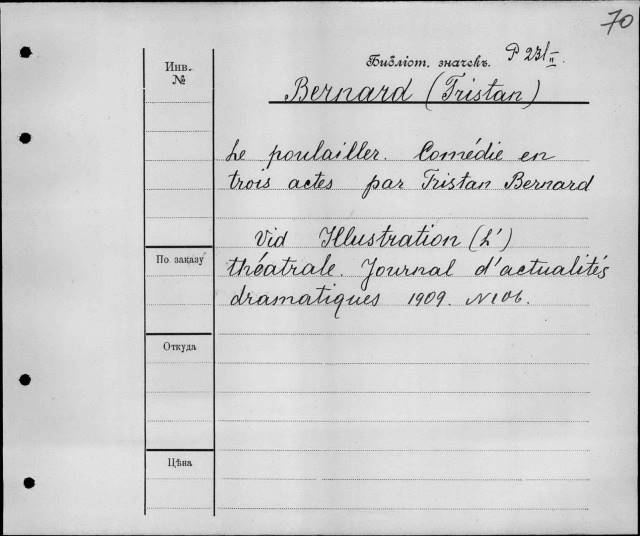 70
Инв. №
Библіот. значекъ.
Bernard (Tristan)
Le poulailler. Comédie en
trois actes par Tristan Bernard
Vid Illustration (L')
théatrale. Journal d'actualités
dramatiques 1909. N 106.
По заказу
Откуда
Цѣна